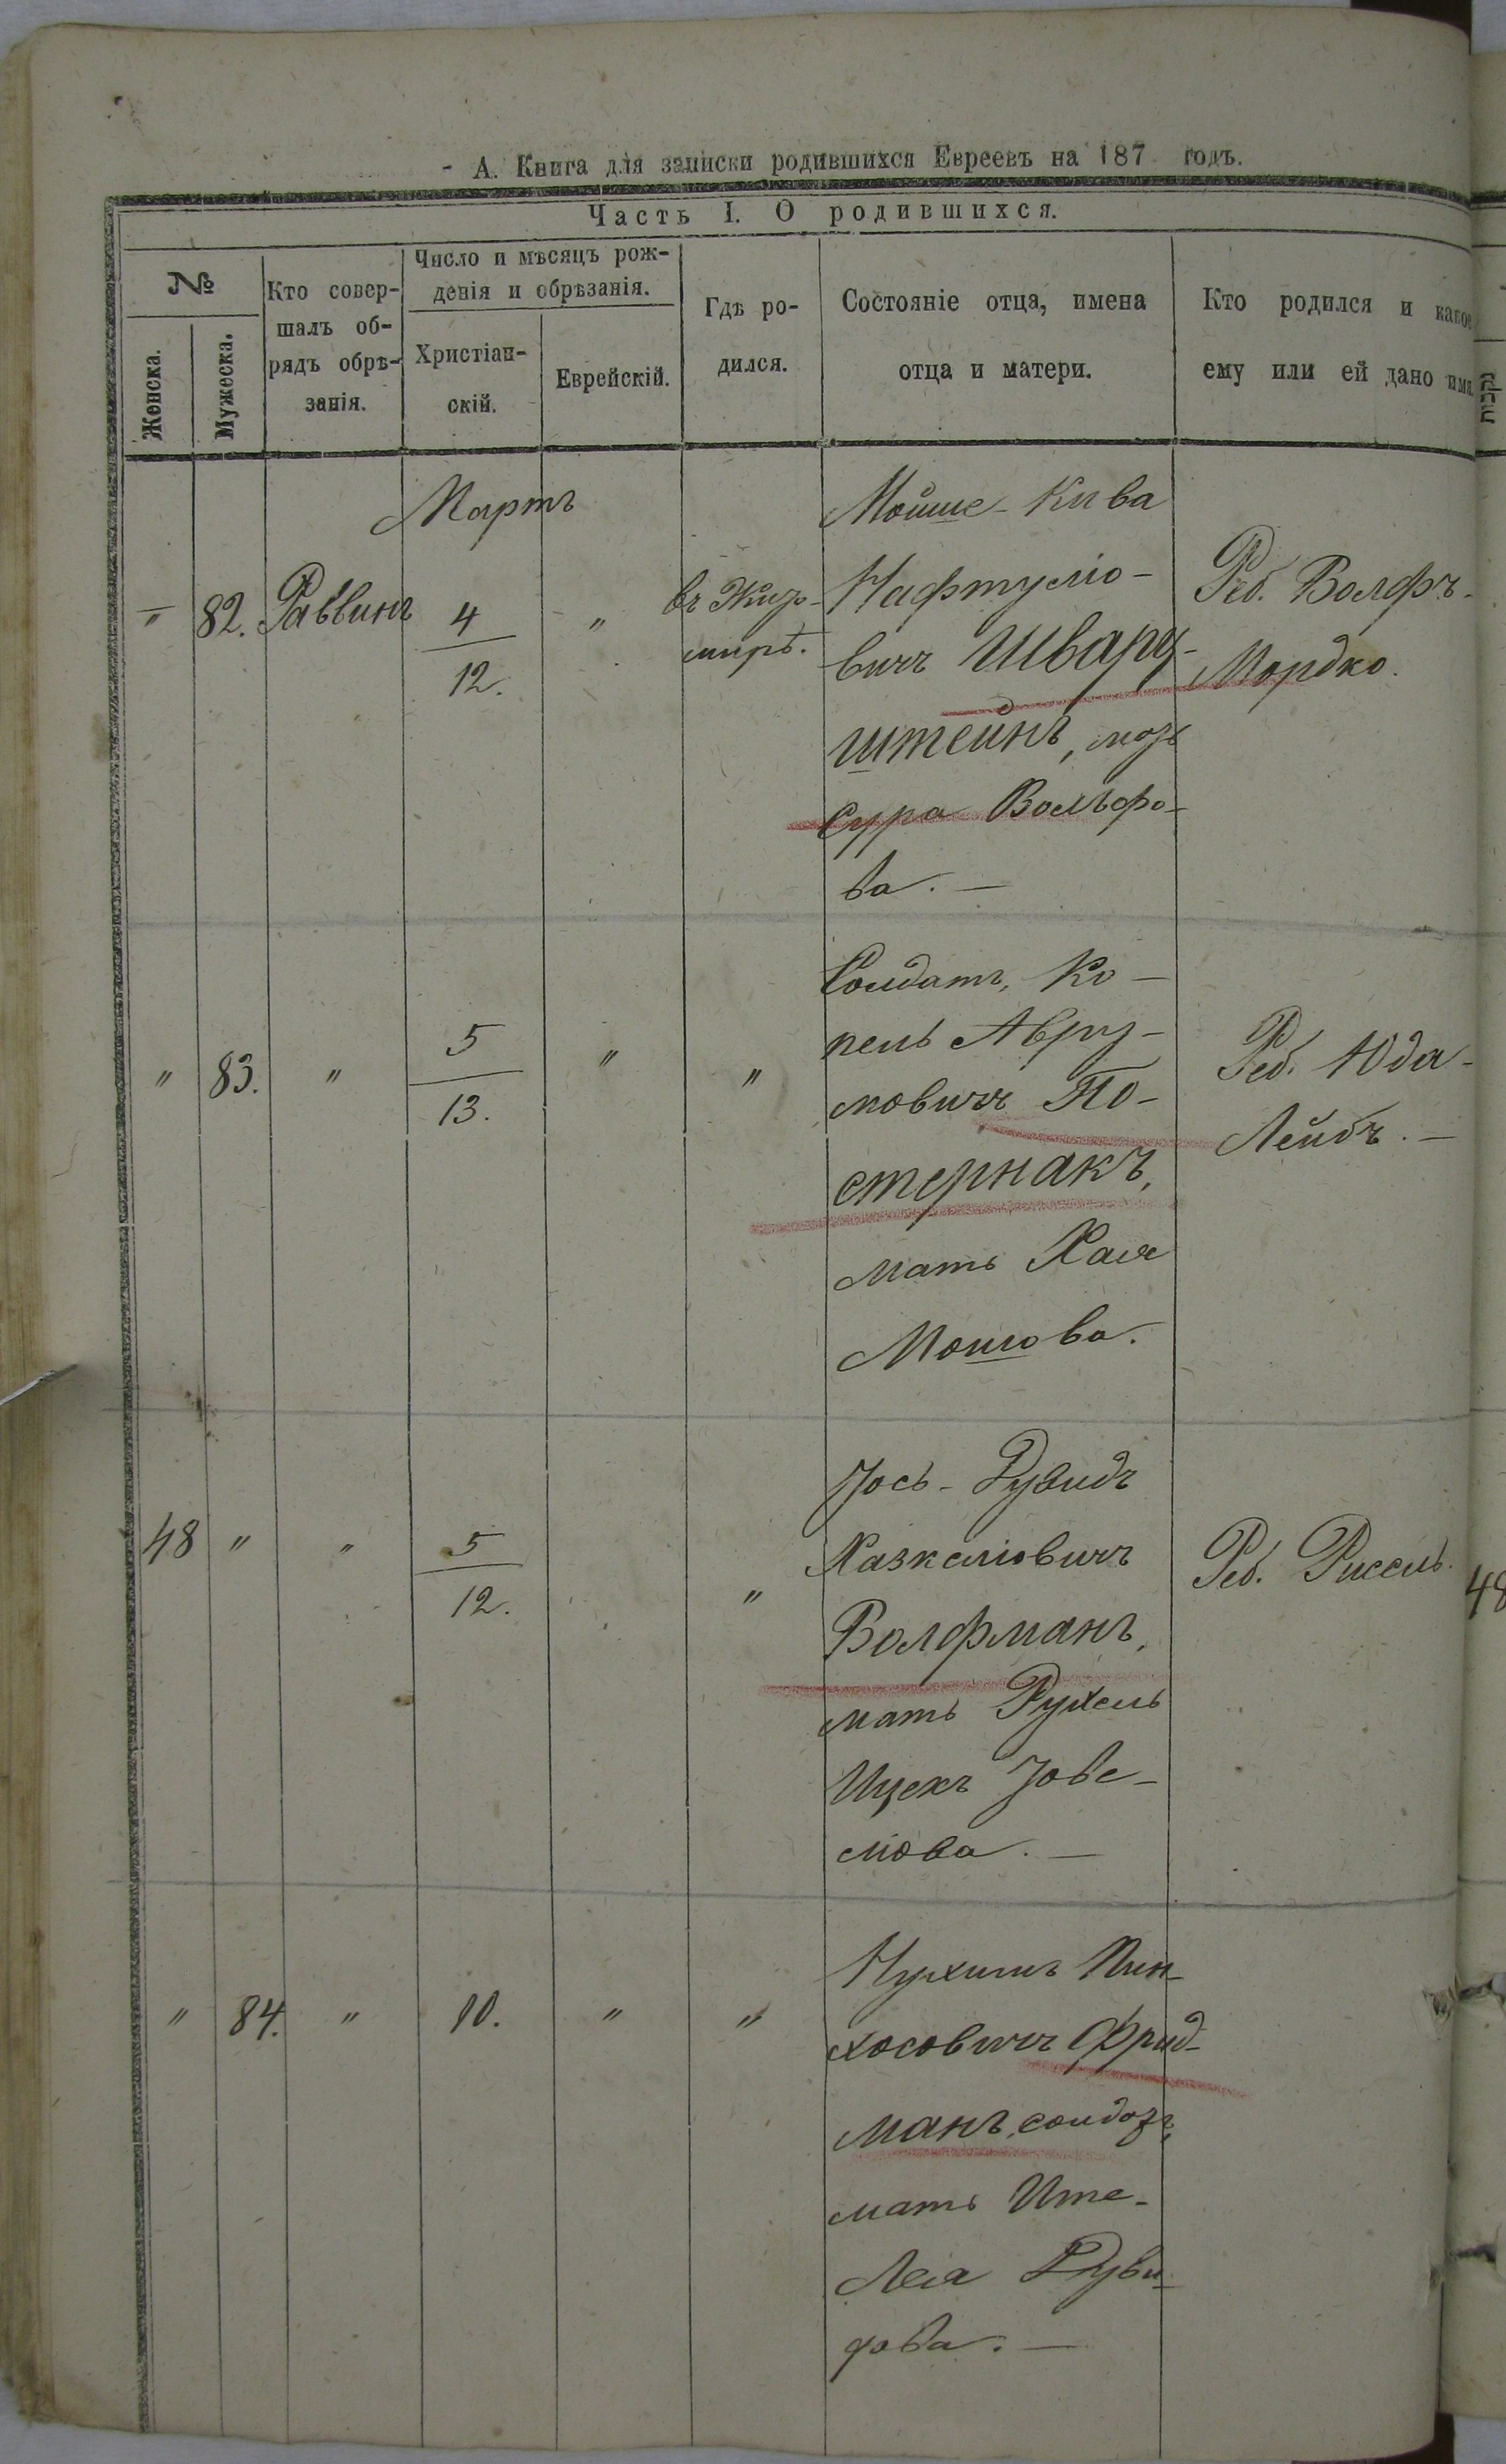 А. Книга для записки родившихся Евреевъ на 187 годъ.
Часть I. О родившихся.
№
Женска.
Мужеска.
Кто совер-
шалъ об-
рядъ обрѣ-
занія.
Число и мѣсяцъ рож-
денія и обрѣзанія.
Христіан-
скій.
Еврейскій.
Гдѣ ро-
дился.
Состояніе отца, имена
отца и матери.
Кто родился и какое
ему или ей дано имя.
Мартъ
" 82. Раввинъ 4
12.
"
въ Жито-
мирѣ.
Мойше-Кива
Нафтуліо-
вичъ Шварц-
штейнъ, мать
Сура Вольфо-
ва. —
Реб. Волфъ-
Мордко.
" 83. " 5
13.
" "
Солдатъ, Ко-
пель Авру-
мовичъ По-
стернакъ,
мать Хая
Мошова.
Реб. Юда-
Лейбъ. —
48 " " 5
12.
"
Іось-Дувидъ
Хазкеліовичъ
Волфманъ,
мать Рухель
Ицекъ Іове-
ліова. —
Реб. Рисель.
48
" 84. " 10. " "
Нухимъ Пин-
хосовичъ Фрид-
манъ, солдатъ,
мать Ите-
Лея Дуви-
дова. —